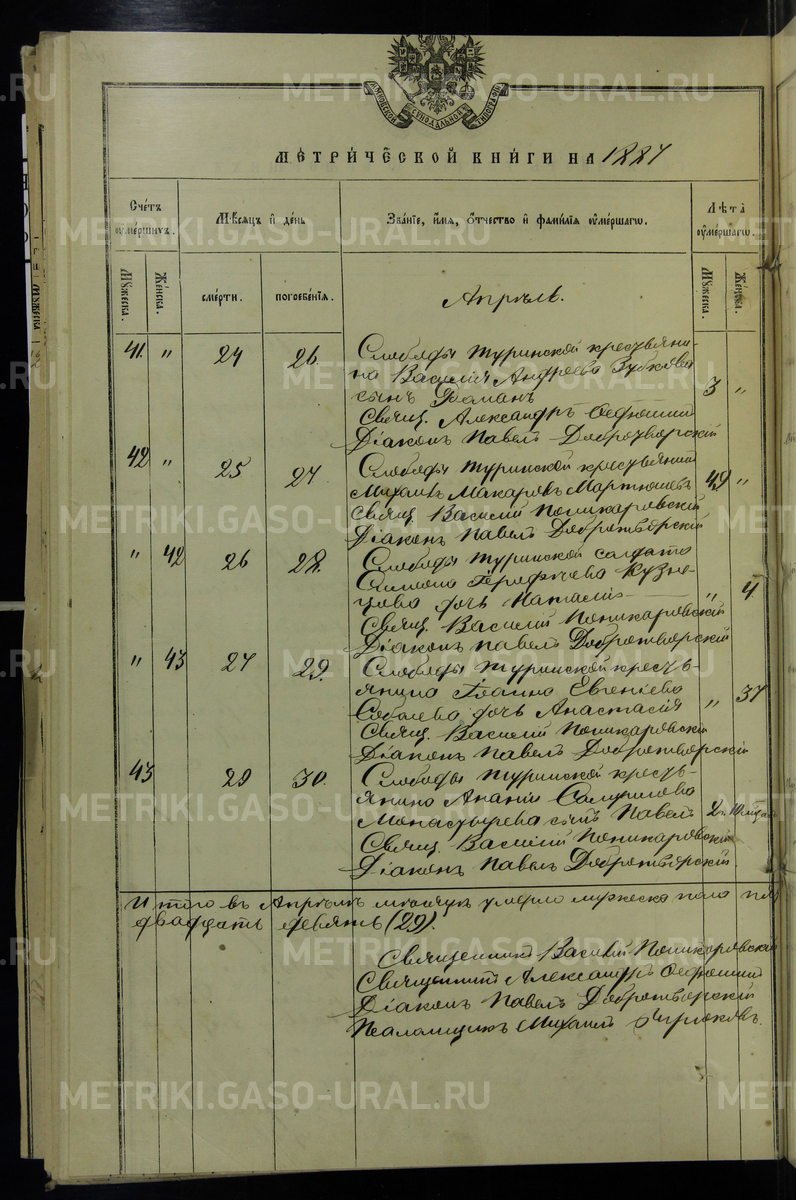 МОСКОВСКОЙ СѴНОДАЛЬНОЙ ТИПОГРАФІИ
МЕТРИЧЕСКОЙ КНИГИ НА 1887
Счетъ умершихъ.
Мѣсяцъ и день
Званіе, имя, отчество и фамилія умершагѡ.
Лѣта умершагѡ.
Мужеска.
Женска.
смерти.
погребенія.
Мужеска.
Женска.
Апрѣль.
41. " 24 26. Слободы Туринской крестьяни-
на Василія Андреева Зубкова
сынъ Романъ 3 "
Свящ. Александръ
Діаконъ Павелъ Добротворскій
42 " 25 27 Слободы Туринской крестьянинъ
Михаилъ Макаровъ Мартюшевъ 49 "
Свящ. Василій Поникаровскій
Діаконъ Павелъ Добротворскій
" 42 26 28. Слободы Туринской солдата
Симеона Кузне-
цова дочь Наталія " 4.
Свящ. Василій Поникаровскій
Діаконъ Павелъ Добротворскій
" 43 27 29. Слободы Туринской кресть-
янина Іоанна Евгеніева
Соболева дочь Анастасія " 37
Свящ. Василій Поникаровскій
Діаконъ Павелъ Добротворскій
43 29 30. Слободы Туринской кресть-
янина Ананіи Самуилова
Монастырева сынъ Павелъ
Свящ. Василій Поникаровскій
Діаконъ Павелъ Добротворскій
Итого въ Апрѣлѣ мѣсяцѣ умерло мужеска пола
двадцать девять (29).
Священникъ Василій Поникаровскій
Священникъ Александръ
Діаконъ Павелъ Добротворскій
Псаломщикъ Михаилъ
METRIKI.GASO-URAL.RU